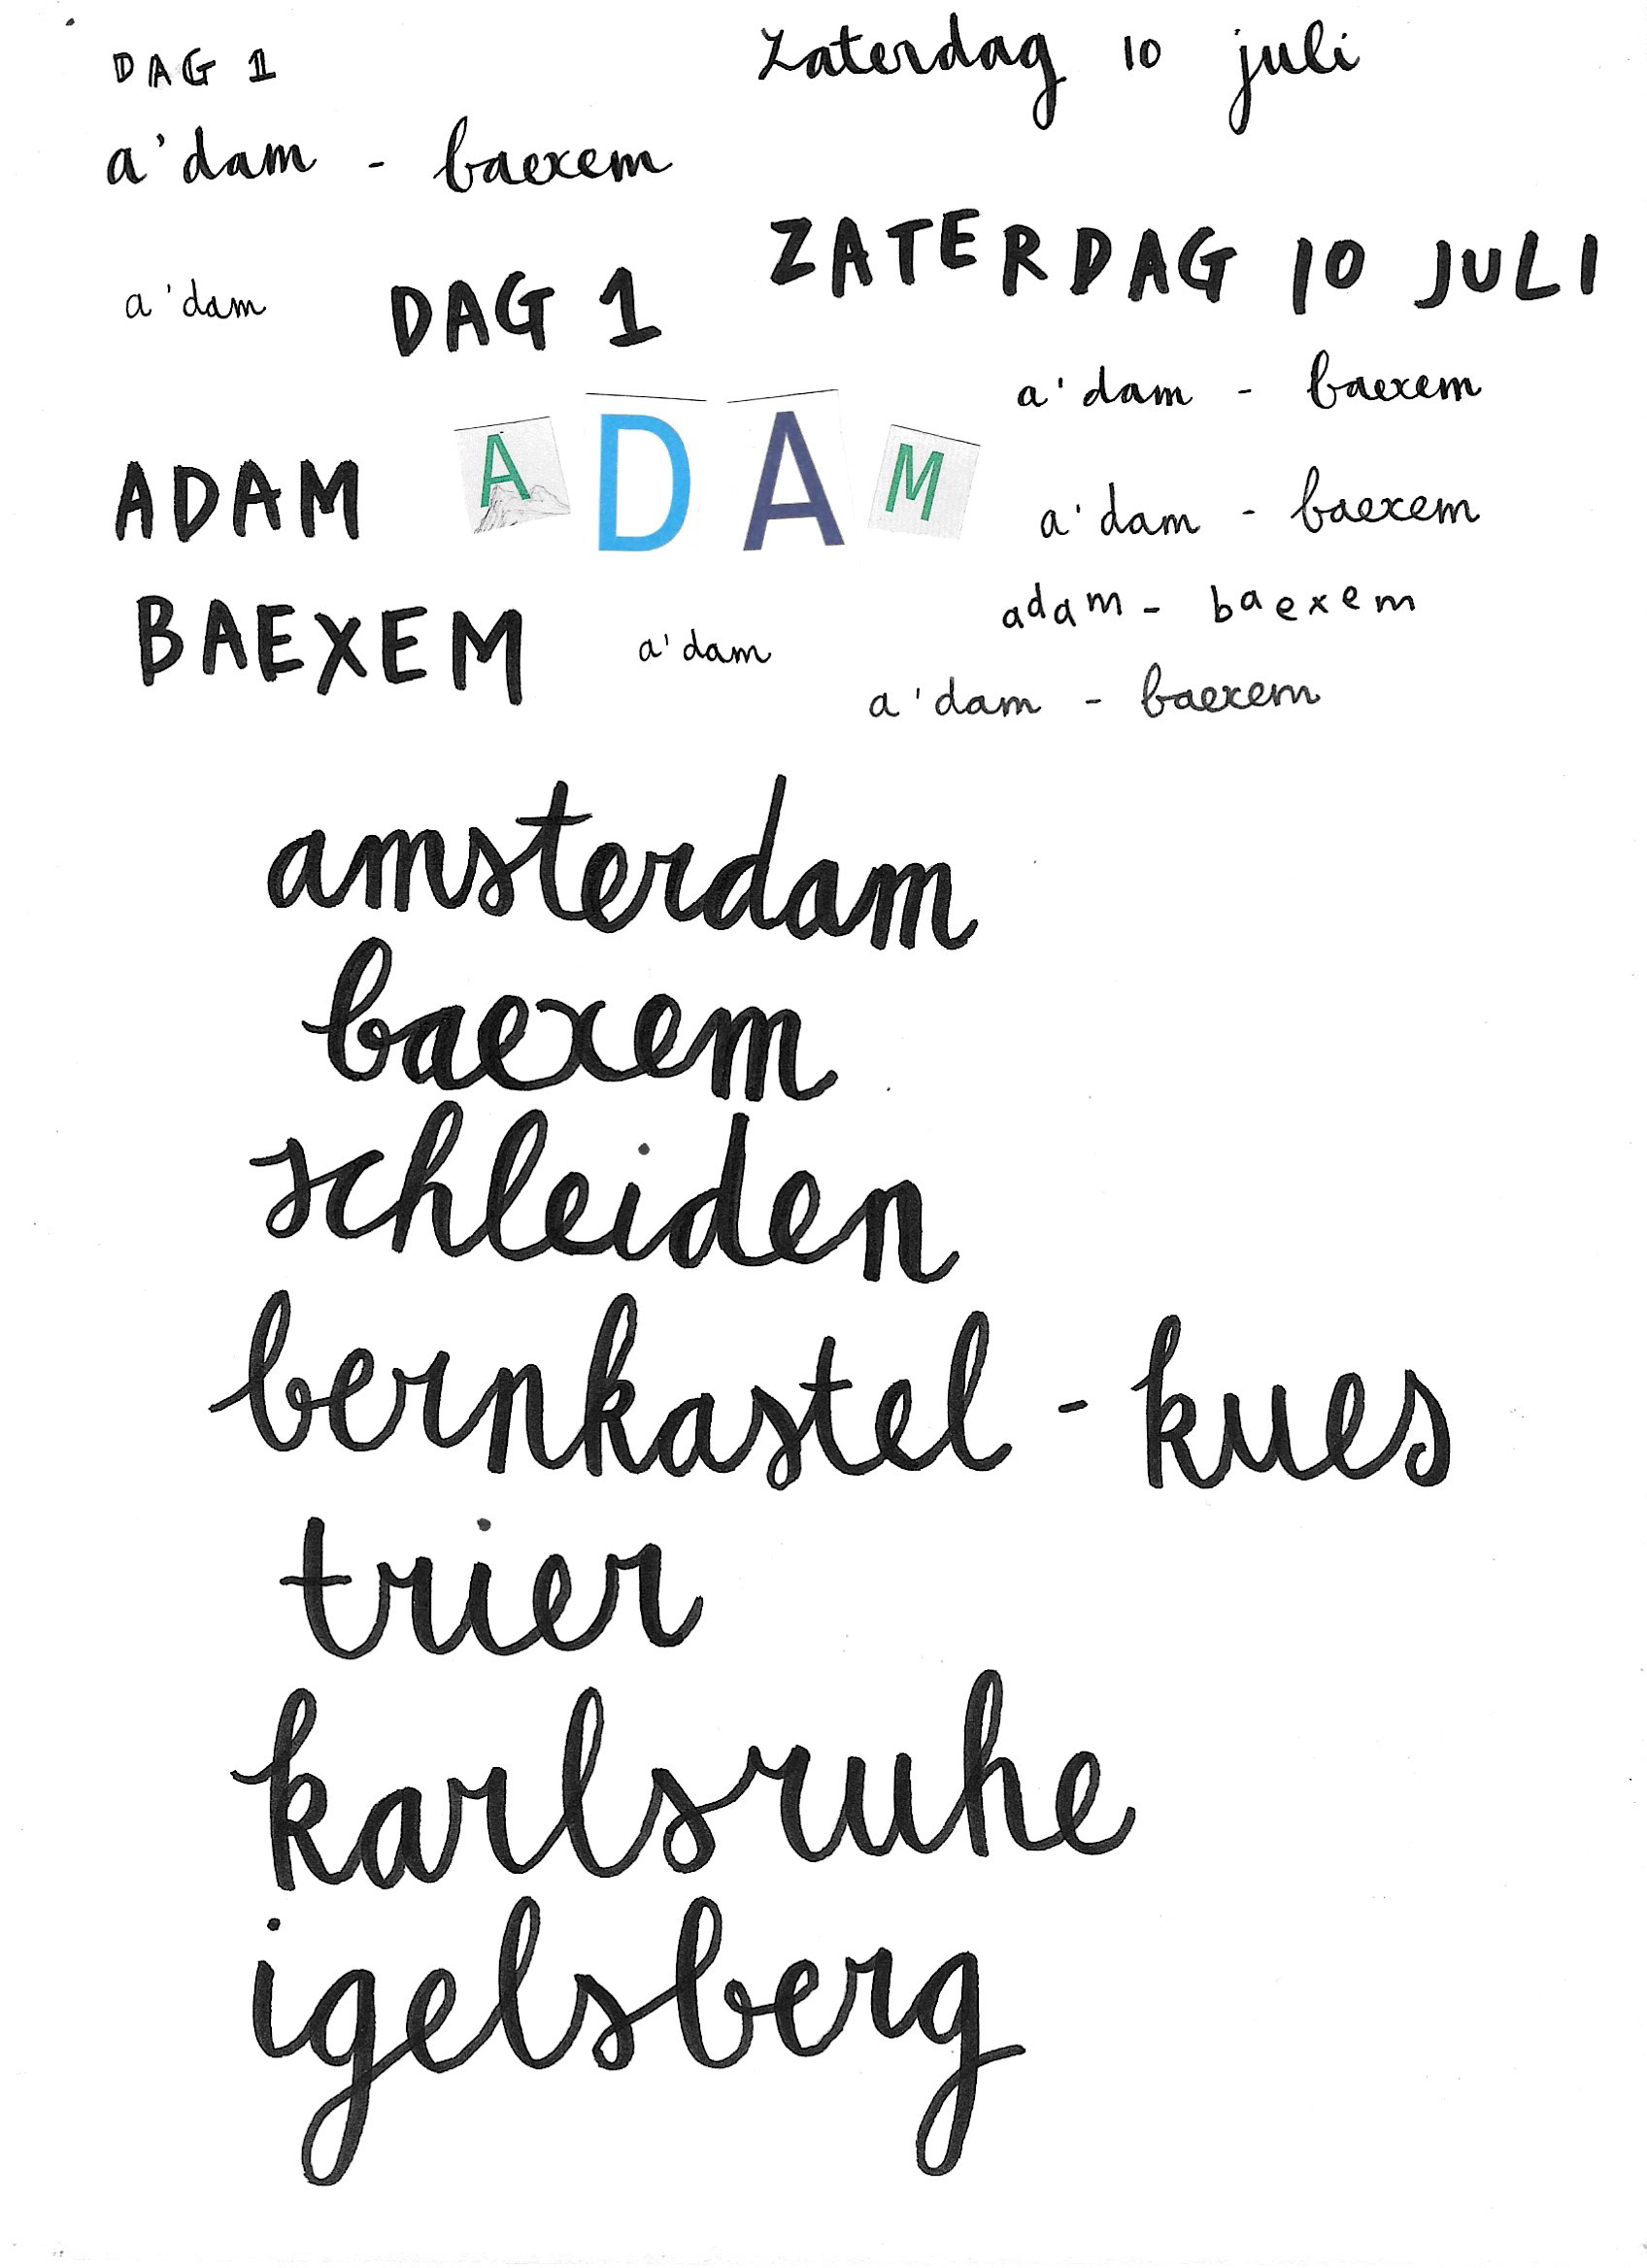 DAG 1
zaterdag 10 juli
a'dam - baexem
ZATERDAG 10 JULI
a'dam
DAG 1
a'dam - baexem
ADAM
ADAM
a'dam - baexem
BAEXEM
a'dam
adam - baexem
a'dam - baexem
amsterdam
baexem
schleiden
bernkastel - kues
trier
karlsruhe
igelsberg